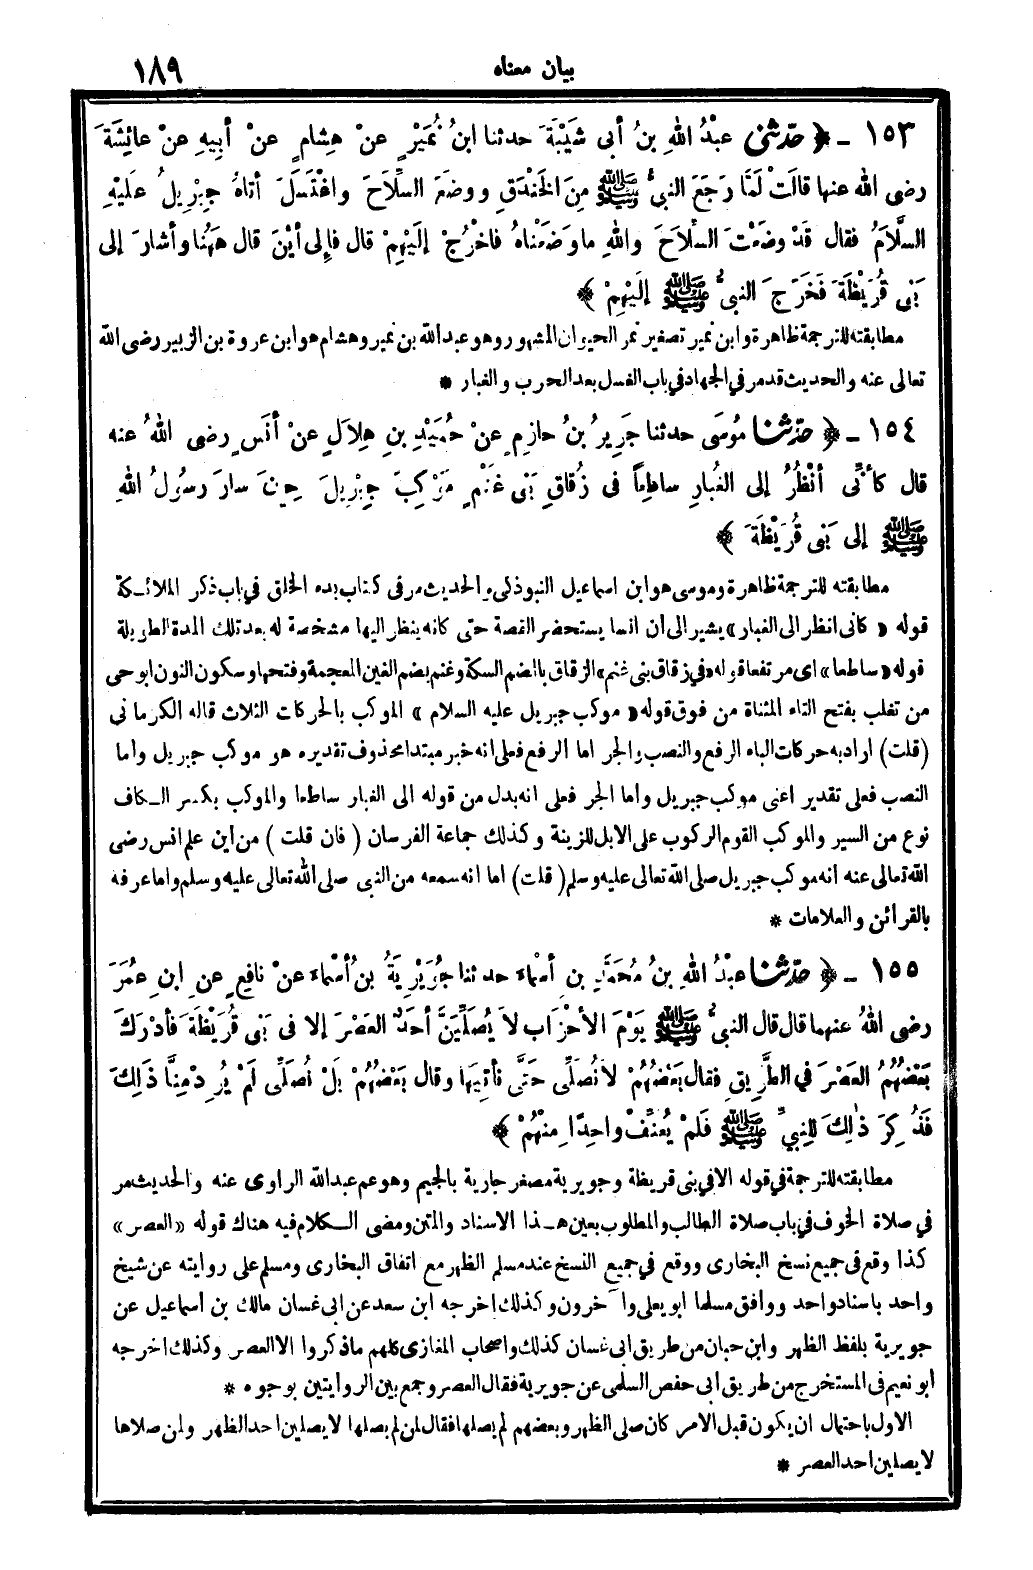 بيان معناه
١٨٩
١٥٣ - ﴿ حدّثني عبْدُ اللهِ بنُ أبي شَيْبَةَ حدثنا ابنُ نُمَيْرٍ عنْ هِشامٍ عنْ أبِيهِ عنْ عائِشَةَ
رضى الله عنها قالَتْ لَمَّا رَجَعَ النبيُّ ﷺ مِنَ الخَنْدَقِ ووضَعَ السِّلاَحَ واغْتَسَلَ أتاهُ جِبْرِيلُ عليْهِ
السَّلاَمُ فقال قَدْ وضَعْتَ السِّلاَحَ واللهِ ما وَضَعْناهُ فاخْرُجْ إلَيْهِمْ قال فإلى أيْنَ قال هَهُنا وأشارَ إلى
بَنِي قُرَيْظَةَ فَخَرَجَ النبيُّ ﷺ إلَيْهِمْ ﴾
مطابقته للترجمة ظاهرة وابن نمير تصغير نمر الحيوان المشهور وهو عبد الله بن نمير وهشام هو ابن عروة بن الزبير رضى الله
تعالى عنه والحديث قد مر في الجهاد في باب الغسل بعد الحرب والغبار *
١٥٤ - ﴿ حدّثنا مُوسَى حدثنا جَرِيرُ بنُ حازِمٍ عنْ حُمَيْدِ بنِ هِلالٍ عنْ أنَسٍ رضى اللهُ عنه
قال كأنِّي أنْظُرُ إلى الغُبارِ ساطِعاً في زُقاقِ بَنِي غَنْمٍ مَوْكِبَ جِبْرِيلَ حِينَ سارَ رسُولُ اللهِ
ﷺ إلى بَنِي قُرَيْظَةَ ﴾
مطابقته للترجمة ظاهرة وموسى هو ابن اسماعيل التبوذكي والحديث مر فى كتاب بدء الخلق في باب ذكر الملائكة
قوله « كأنى انظر الى الغبار» يشير الى أن انسا يستحضر القصة حتى كانه ينظر اليها مشخصة له بعد تلك المدة الطويلة
قوله « ساطعا» اى مرتفعا قوله «في زقاق بنى غنم» الزقاق بالضم السكة وغنم بضم الغين المعجمة وفتحها وسكون النون ابو حى
من تغلب بفتح التاء المثناة من فوق قوله « موكب جبريل عليه السلام » الموكب بالحركات الثلاث قاله الكرمانى
(قلت) اراد به حركات الباء الرفع والنصب والجر اما الرفع فعلى انه خبر مبتدا محذوف تقديره هو موكب جبريل واما
النصب فعلى تقدير اعنى موكب جبريل واما الجر فعلى انه بدل من قوله الى الغبار ساطعا والموكب بكسر الكاف
نوع من السير والموكب القوم الركوب على الابل للزينة وكذلك جماعة الفرسان ( فان قلت ) من اين علم انس رضى
الله تعالى عنه انه موكب جبريل صلى الله تعالى عليه وسلم ( قلت) اما انه سمعه من النبى صلى الله تعالى عليه وسلم واما عرفه
بالقرائن والعلامات *
١٥٥ - ﴿ حدّثنا عبْدُ اللهِ بنُ مُحَمَّدِ بنِ أسْماءَ حدثنا جُوَيْرِيَةُ بنُ أسْماءَ عنْ نافِعٍ عنِ ابنِ عُمَرَ
رضى اللهُ عنهما قال قال النبيُّ ﷺ يَوْمَ الأحْزَابِ لاَ يُصَلِّيَنَّ أحَدٌ العَصْرَ إلا في بَنِي قُرَيْظَةَ فأدْرَكَ
بَعْضُهُمُ العَصْرَ في الطَّرِيقِ فقال بَعْضُهُمْ لا نُصَلِّى حَتَّى نأتِيَها وقال بَعْضُهُمْ بَلْ نُصَلِّى لَمْ يُرِدْ مِنَّا ذَلِكَ
فَذُكِرَ ذٰلِكَ لِلنبيِّ ﷺ فَلَمْ يُعَنِّفْ واحِدًا مِنْهُمْ ﴾
مطابقته للترجمة في قوله الا في بنى قريظة وجويرية مصغر جارية بالجيم وهو عم عبد الله الراوى عنه والحديث مر
في صلاة الخوف في باب صلاة الطالب والمطلوب بعين هذا الاسناد والمتن ومضى الكلام فيه هناك قوله «العصر»
كذا وقع فى جميع نسخ البخارى ووقع في جميع النسخ عند مسلم الظهر مع اتفاق البخارى ومسلم على روايته عن شيخ
واحد باسناد واحد ووافق مسلما ابو يعلى وآخرون وكذلك اخرجه ابن سعد عن ابى غسان مالك بن اسماعيل عن
جويرية بلفظ الظهر وابن حبان من طريق ابى غسان كذلك واصحاب المغازى كلهم ماذكروا الا العصر وكذلك اخرجه
ابو نعيم فى المستخرج من طريق ابى حفص السلمى عن جويرية فقال العصر وجمع بين الروايتين بوجوه *
الاول باحتمال ان يكون قبل الامر كان صلى الظهر وبعضهم لم يصلها فقال لمن لم يصلها لا يصلين احد الظهر ولمن صلاها
لا يصلين احد العصر *